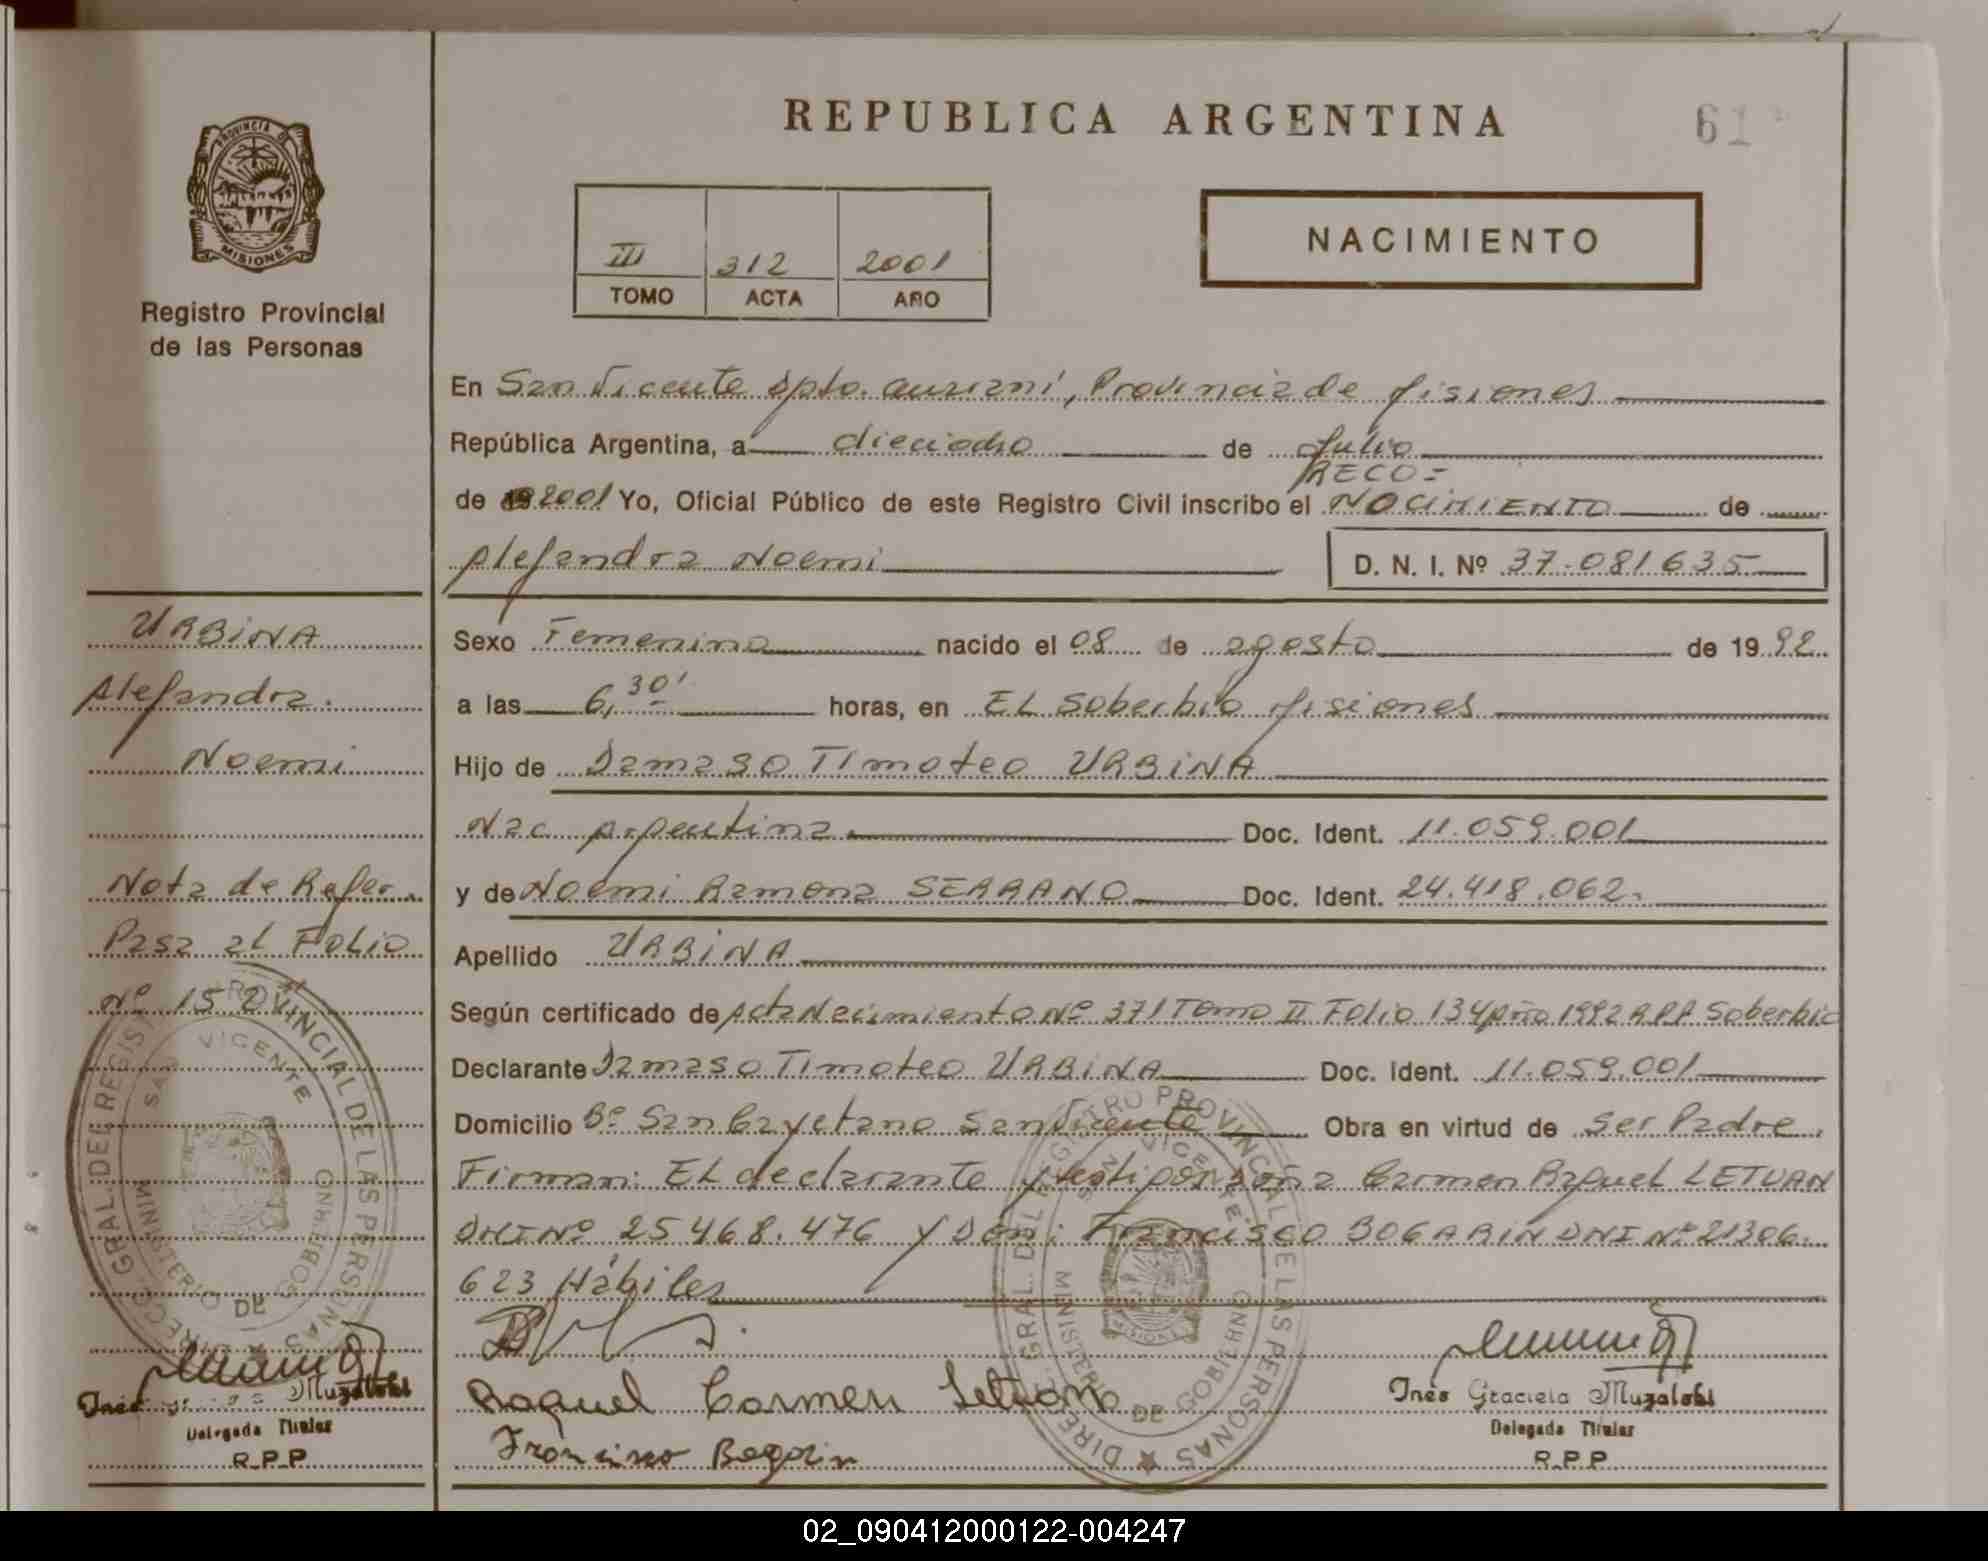 REPUBLICA ARGENTINA
61
PROVINCIA DE
MISIONES
Registro Provincial
de las Personas
III 312 2001
TOMO ACTA AÑO
NACIMIENTO
En San Vicente Dpto. Guaraní, Provincia de Misiones
República Argentina, a dieciocho de Julio
RECO=
de 19 2001 Yo, Oficial Público de este Registro Civil inscribo el NOCIMIENTO de
Alejandra Noemi D. N. I. Nº 37.081635
URBINA
Alejandra
Noemi
Nota de Refer.
Pasa al Folio
Nº 152
Sexo Femenino nacido el 08 de agosto de 1992
a las 6,30' horas, en EL Soberbio Misiones
Hijo de Damaso Timoteo URBINA
Nac Argentina Doc. Ident. 11.059.001
y de Noemi Ramona SERRANO Doc. Ident. 24.418.062.
Apellido URBINA
Según certificado de Acta Nacimiento Nº 371 Tomo II Folio 134 Año 1992 RPP Soberbio
Declarante Damaso Timoteo URBINA Doc. Ident. 11.059.001
Domicilio Bº San Cayetano San Vicente Obra en virtud de Ser Padre.
Firman: EL declarante y testigos Doña Carmen Raquel LETUAN
DNI Nº 25468.476 y Don: Francisco BOGARIN DNI Nº 21306.
623 Hábiles
Raquel Carmen Letuan
Francisco Bogarin
Inés Graciela Muzalski
Delegada Titular
R.P.P
Inés Muzalski
Delegada Titular
R.P.P
DIRECC. GRAL. DEL REGISTRO PROVINCIAL DE LAS PERSONAS
SAN VICENTE
MINISTERIO DE GOBIERNO
DIRECC. GRAL. DEL REGISTRO PROVINCIAL DE LAS PERSONAS
SAN VICENTE
MINISTERIO DE GOBIERNO
MISIONES
02_090412000122-004247